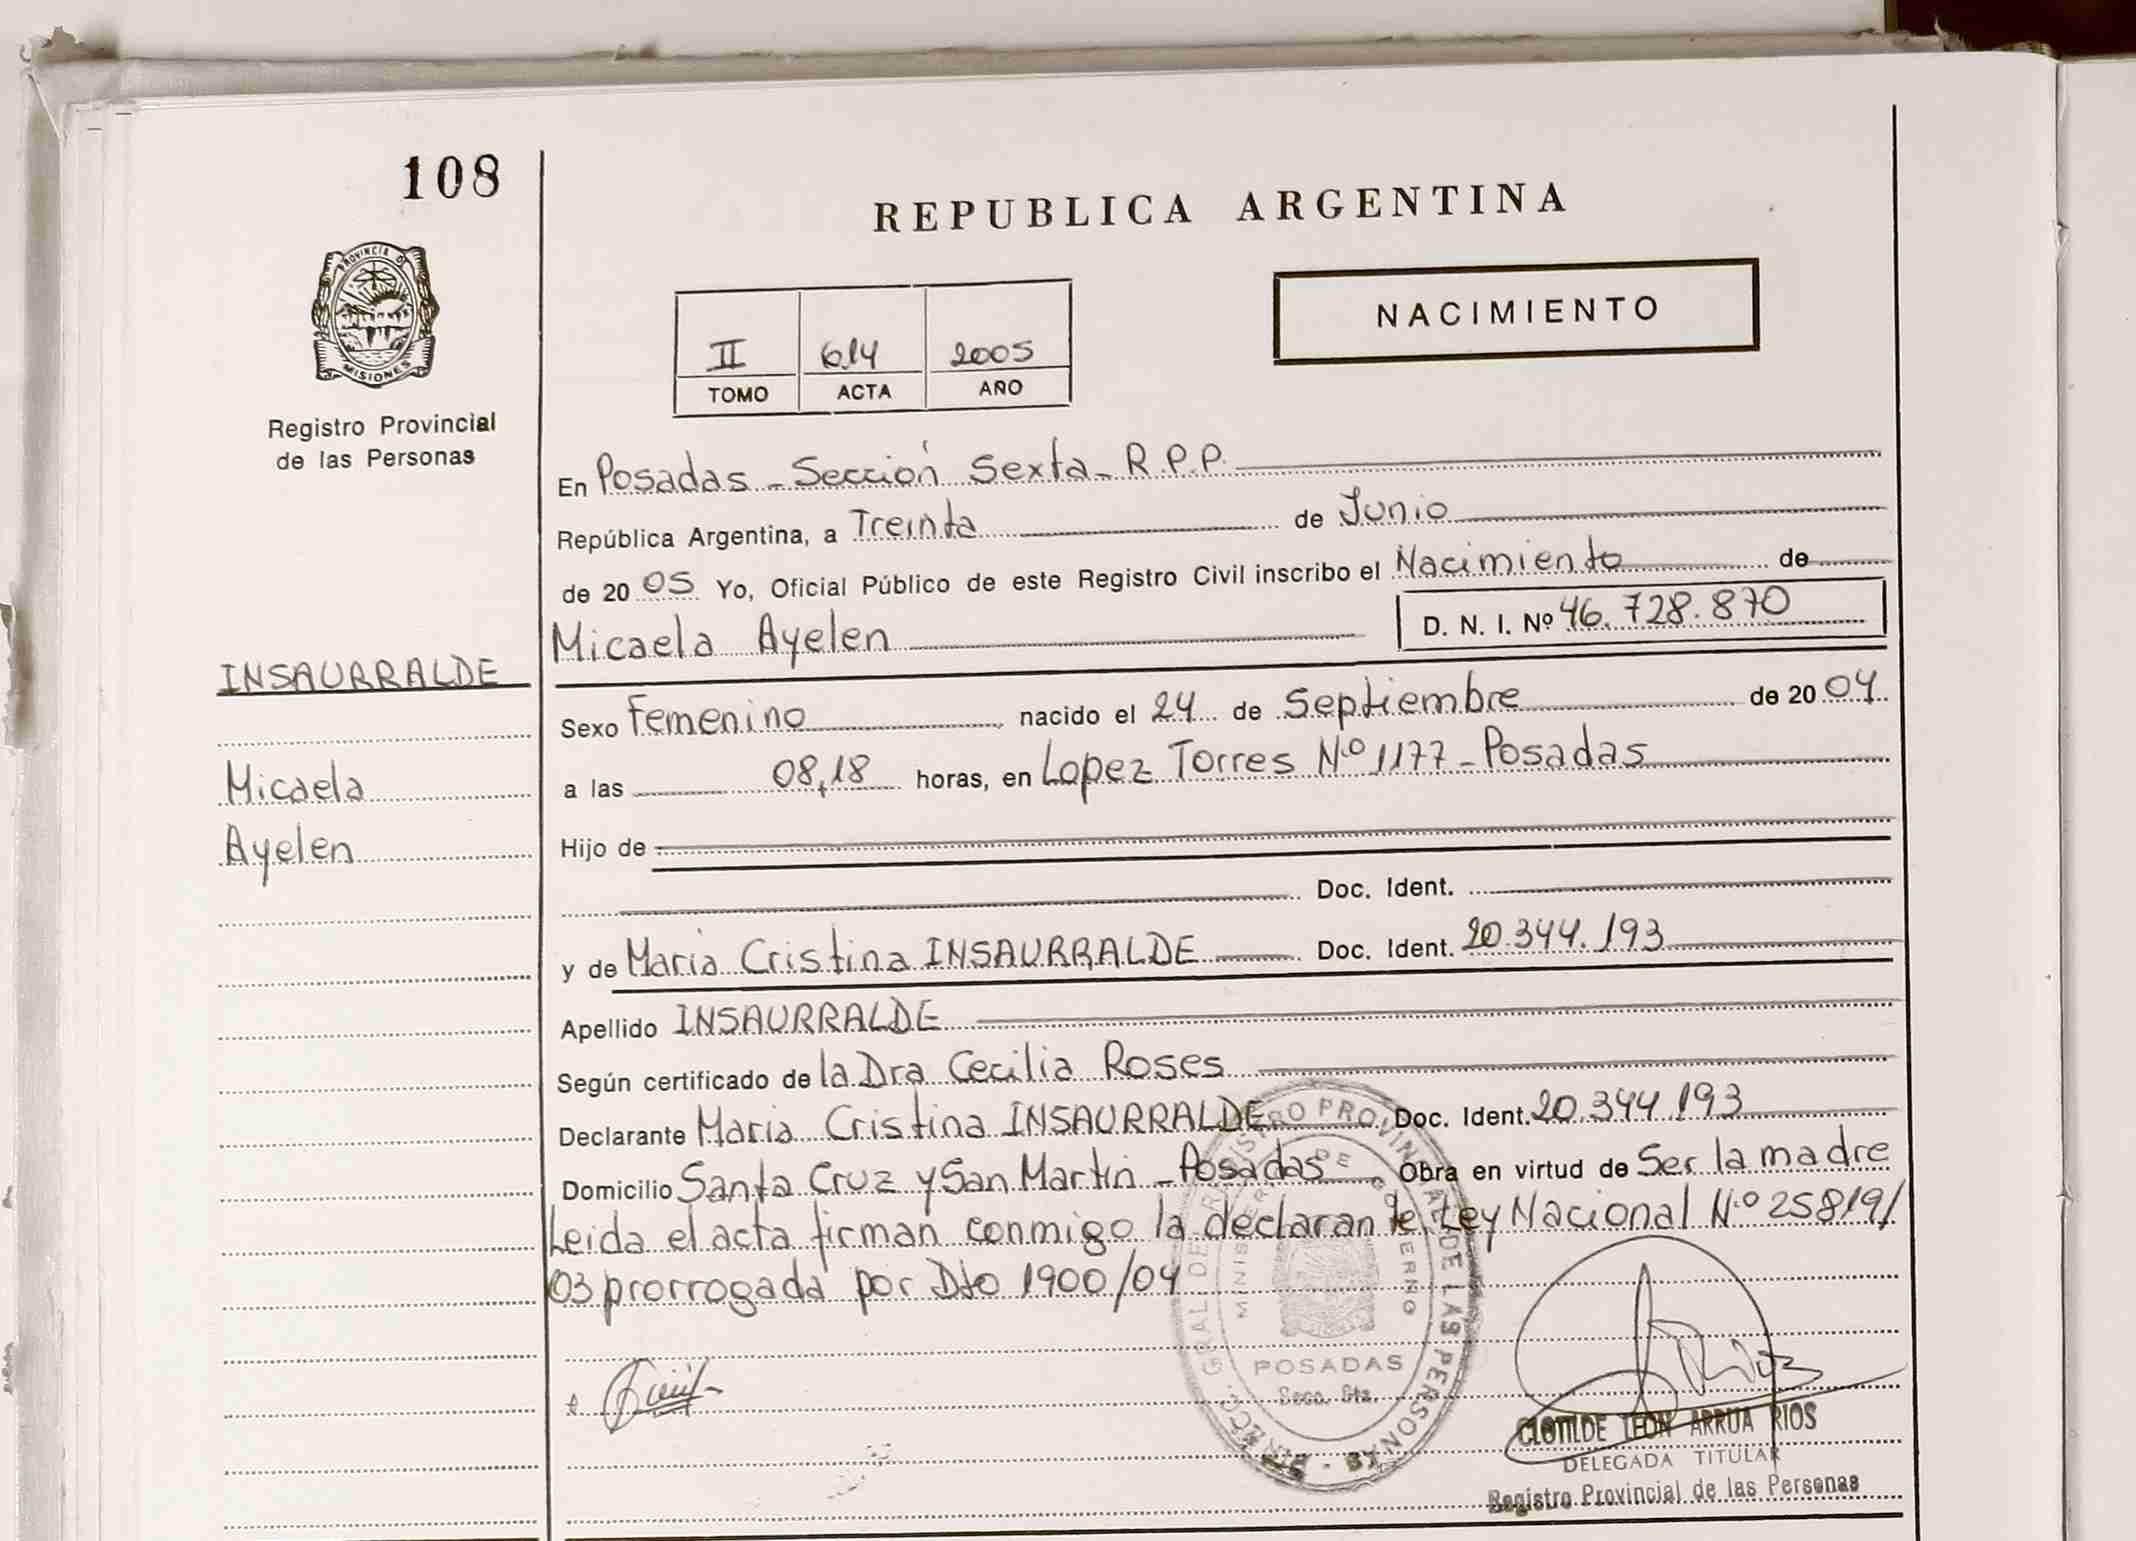 108
REPUBLICA ARGENTINA
PROVINCIA DE
MISIONES
Registro Provincial
de las Personas
NACIMIENTO
II 614 2005
TOMO ACTA AÑO
En Posadas - Sección Sexta - R.P.P.
República Argentina, a Treinta de Junio
de 20 05 Yo, Oficial Público de este Registro Civil inscribo el Nacimiento de
Micaela Ayelen D. N. I. Nº 46.728.870
INSAURRALDE
Micaela
Ayelen
Sexo Femenino nacido el 24 de Septiembre de 20 04
a las 08,18 horas, en Lopez Torres Nº 1177 - Posadas
Hijo de
Doc. Ident.
y de Maria Cristina INSAURRALDE Doc. Ident. 20.344.193
Apellido INSAURRALDE
Según certificado de la Dra Cecilia Roses
Declarante Maria Cristina INSAURRALDE Doc. Ident. 20.344.193
Domicilio Santa Cruz y San Martin - Posadas Obra en virtud de Ser la madre
Leida el acta firman conmigo la declarante Ley Nacional Nº 25819/
03 prorrogada por Dto 1900/04
GRAL DE REGISTRO PROVINCIAL DE LAS PERSONAS
MINISTERIO DE GOBIERNO
POSADAS
CLOTILDE LEON ARRUA RIOS
DELEGADA TITULAR
Registro Provincial de las Personas